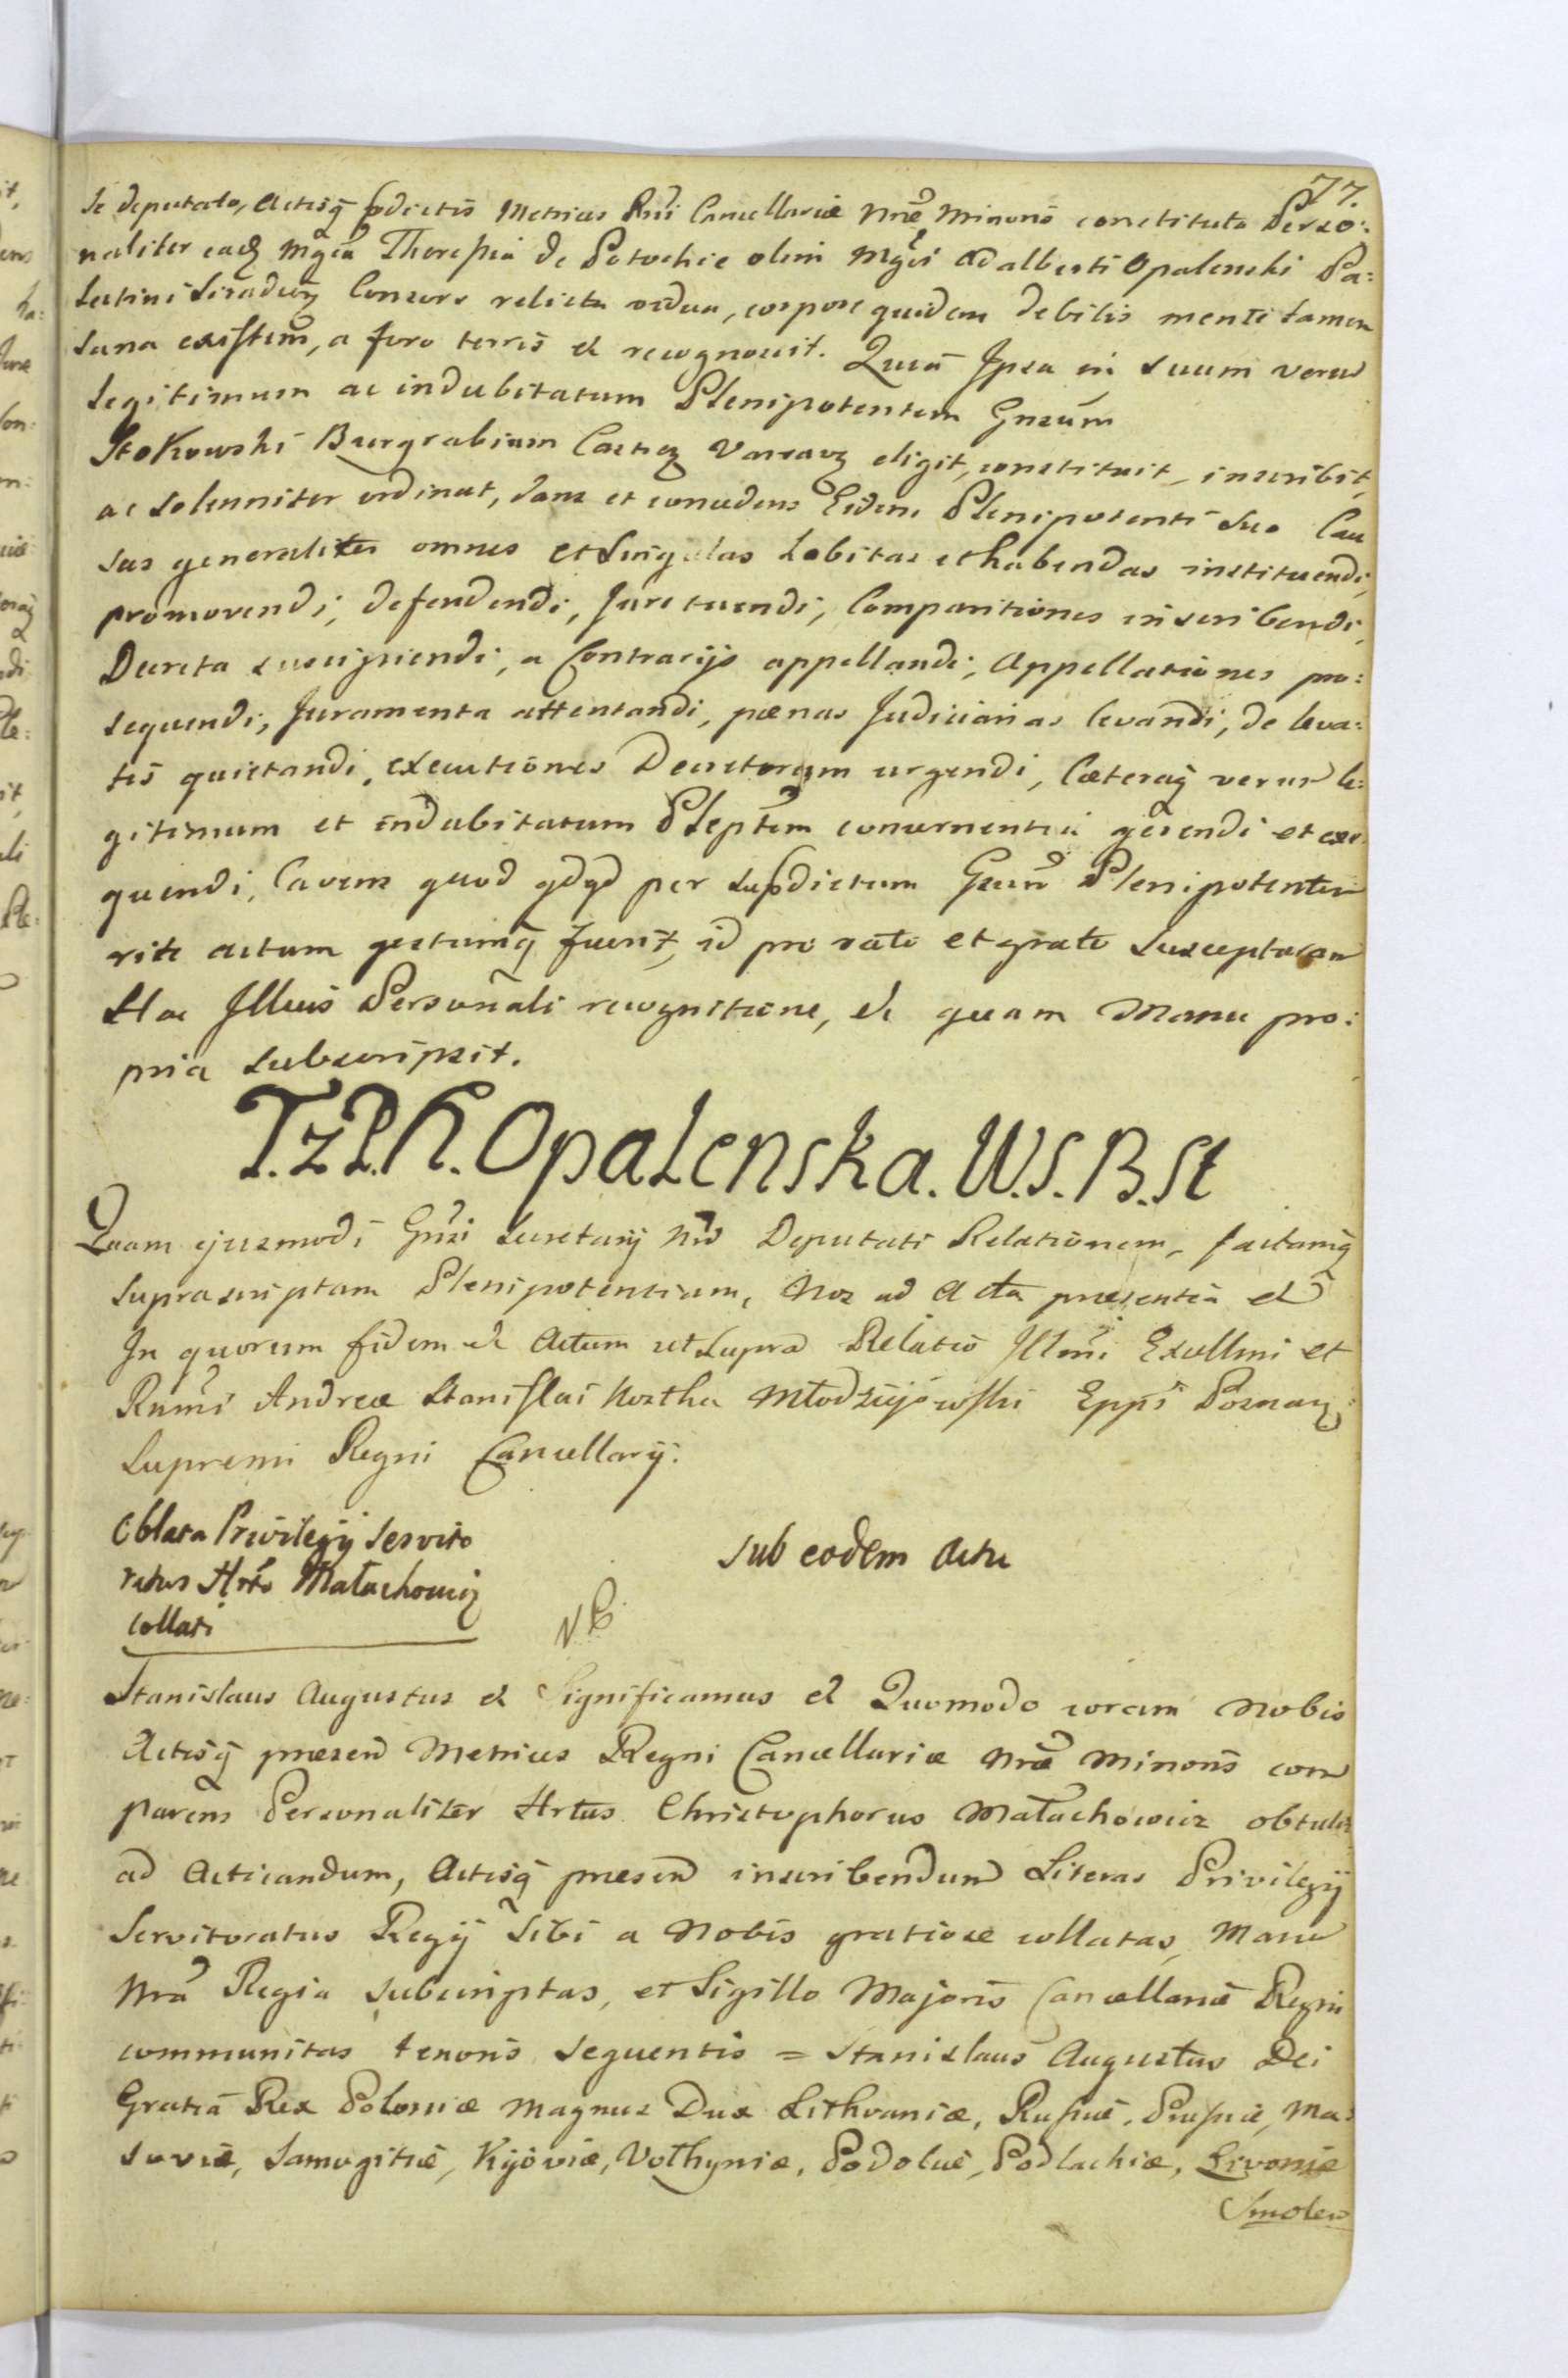 77.
se deputato, Actisq̃ pdictis Metrices Rñi Cancellariæ Nræ Minoris constituta Perso:
naliter eadẽ Mgca Theressia de Potockie olim Mgci Adalberti Opalenski Pa:
latini Siradieñ Consors relicta vidua, corpore quidem debilis mente tamen
sana existens, a foro terris et recognovit. Quia Ipsa in suum verum
legitimum ac indubitatum Plenipotentem Gnsum
Stokowski Burgrabium Castreñ Varsavieñ eligit, constituit, inscribit,
ac solenniter ordinat, dans et concedens Eidem Plenipotenti suo Cau
sas generaliter omnes et Singulas habitas et habendas instituendi,
promovendi, defendendi, Jure tuendi, Comparitiones inscribendi,
Decreta suscipiendi, a Contrarijs appellandi, Appellationes pro:
sequendi, Juramenta attentandi, pænas Judiciarias levandi, de leva:
tis quietandi, executiones Decretorum urgendi, Cæteraq̃ verum le:
gitimum et indubitatum Pleptem concernentia gerendi et exe
quendi. Cavens quod qdqd per supdictum Gnsum Plenipotentem
rite actum gestumq̃ fuerit, id pro rato et grato susceptaram
Hac Illius Personali recognitione, et quam Manu pro:
pria subscripsit.
T. z P. K. Opalenska. W. S. B. St
Quam ejusmodi Gnsi Secretarij Nri Deputati Relationem, factamq̃
suprascriptam Plenipotentiam, Nos ad Acta præsentia et
In quorum fidem et Actum ut supra Relatio Illmi Excellmi et
Rnmi Andreæ Stanislai Kostka Młodziejowski Eppi Posnañ:
Supremi Regni Cancellarij.
Oblata Privilegij Servito
ratus Hrto Małachowicz
collati
sub eodem Actu
NB
Stanislaus Augustus et Significamus et Quomodo coram Nobis
Actisq̃ præsen Metrices Regni Cancellariæ Nræ Minoris com
parens Personaliter Hrtus Christophorus Małachowicz obtulit
ad Acticandum, Actisq̃ præsen inscribendum Literas Privilegij
Servitoratus Regij Sibi a Nobis gratiose collatas, Manu
Nra Regia subscriptas, et Sigillo Majoris Cancellariæ Regni
communitas tenoris sequentis = Stanislaus Augustus Dei
Gratia Rex Poloniæ Magnus Dux Lithvaniæ, Russiæ, Prussiæ, Ma:
soviæ, Samogitiæ, Kijoviæ, Volhyniæ, Podoliæ, Podlachiæ, Livoniæ
Smolen